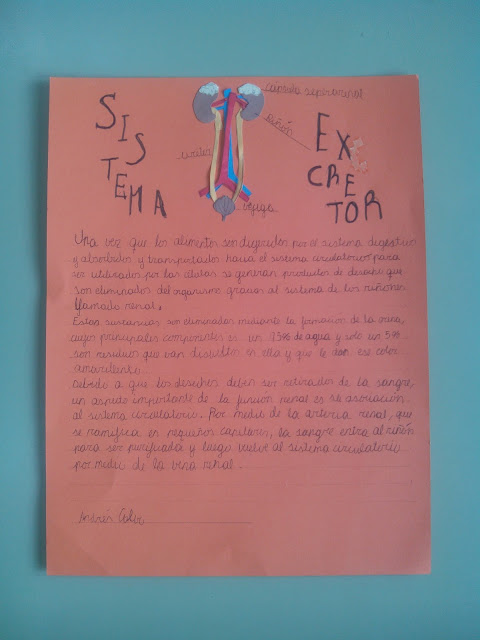 SISTEMA
EXCRETOR
cápsula suprarrenal
Riñón
uréter
vejiga
Una vez que los alimentos son digeridos por el sistema digestivo
y absorbidos y transportados hacia el sistema circulatorio para
ser utilizados por las células se generan productos de desecho que
son eliminados del organismo gracias al sistema de los riñones
llamado renal.
Estas sustancias son eliminadas mediante la formacion de la orina,
cuyos principales componentes es un 95% de agua y solo un 5%
son residuos que van disueltos en ella y que le dan ese color
amarillento.
Debido a que los desechos deben ser retirados de la sangre,
un aspecto importante de la funsion renal es su asociación
al sistema circulatorio. Por medio de la arteria renal, que
se ramifica en pequeños capilares, la sangre entra al riñón
para ser purificada y luego vuelve al sistema circulatorio
por medio de la vena renal.
Andrés